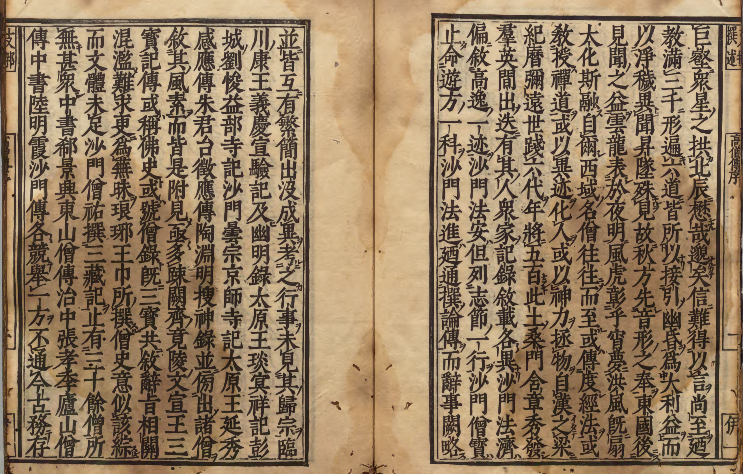 巨壑衆星之拱北辰懸哉邈矣信難得以言尚至迺
教滿三千形遍六道皆所以接引幽昏爲大利益而
以淨穢異聞昇墜殊見故秋方先音形之奉東國後
見聞之益雲龍表於夜明風虎彰乎宵夢洪風既扇
大化斯融自爾西域名僧往往而至或傳度經法或
教授禪道或以異迹化人或以神力拯物自漢之梁
紀曆彌遠世踐六代年將五百此土桑門含章秀發
羣英間出迭有其人衆家記録敘載各異沙門法濟
偏敘高逸一迹沙門法安但列志節一行沙門僧寶
止命遊方一科沙門法進迺通撰論傳而辭事闕略
並皆互有繁簡出没成異考之行事未見其歸宗臨
川康王義慶宣驗記及幽明録太原王琰冥祥記彭
城劉悛益部寺記沙門曇宗京師寺記太原王延秀
感應傳朱君台徵應傳陶淵明搜神録並傍出諸僧
敘其風素而皆是附見亟多踈闕齊竟陵文宣王三
寶記傳或稱佛史或號僧録既三寶共敘辭旨相關
混濫難求更爲蕪昧琅琊王巾所撰僧史意似該綜
而文體未足沙門僧祐撰三藏記止有三十餘僧所
無甚衆中書郗景典東山僧傳治中張孝秀廬山僧
傳中書陸明霞沙門傳各競舉一方不通今古務存